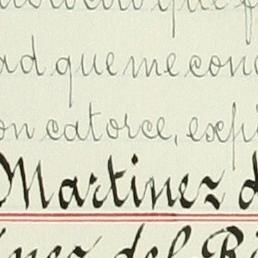 que
ad que me con
on catorce, exp
Martinez d
nez del R